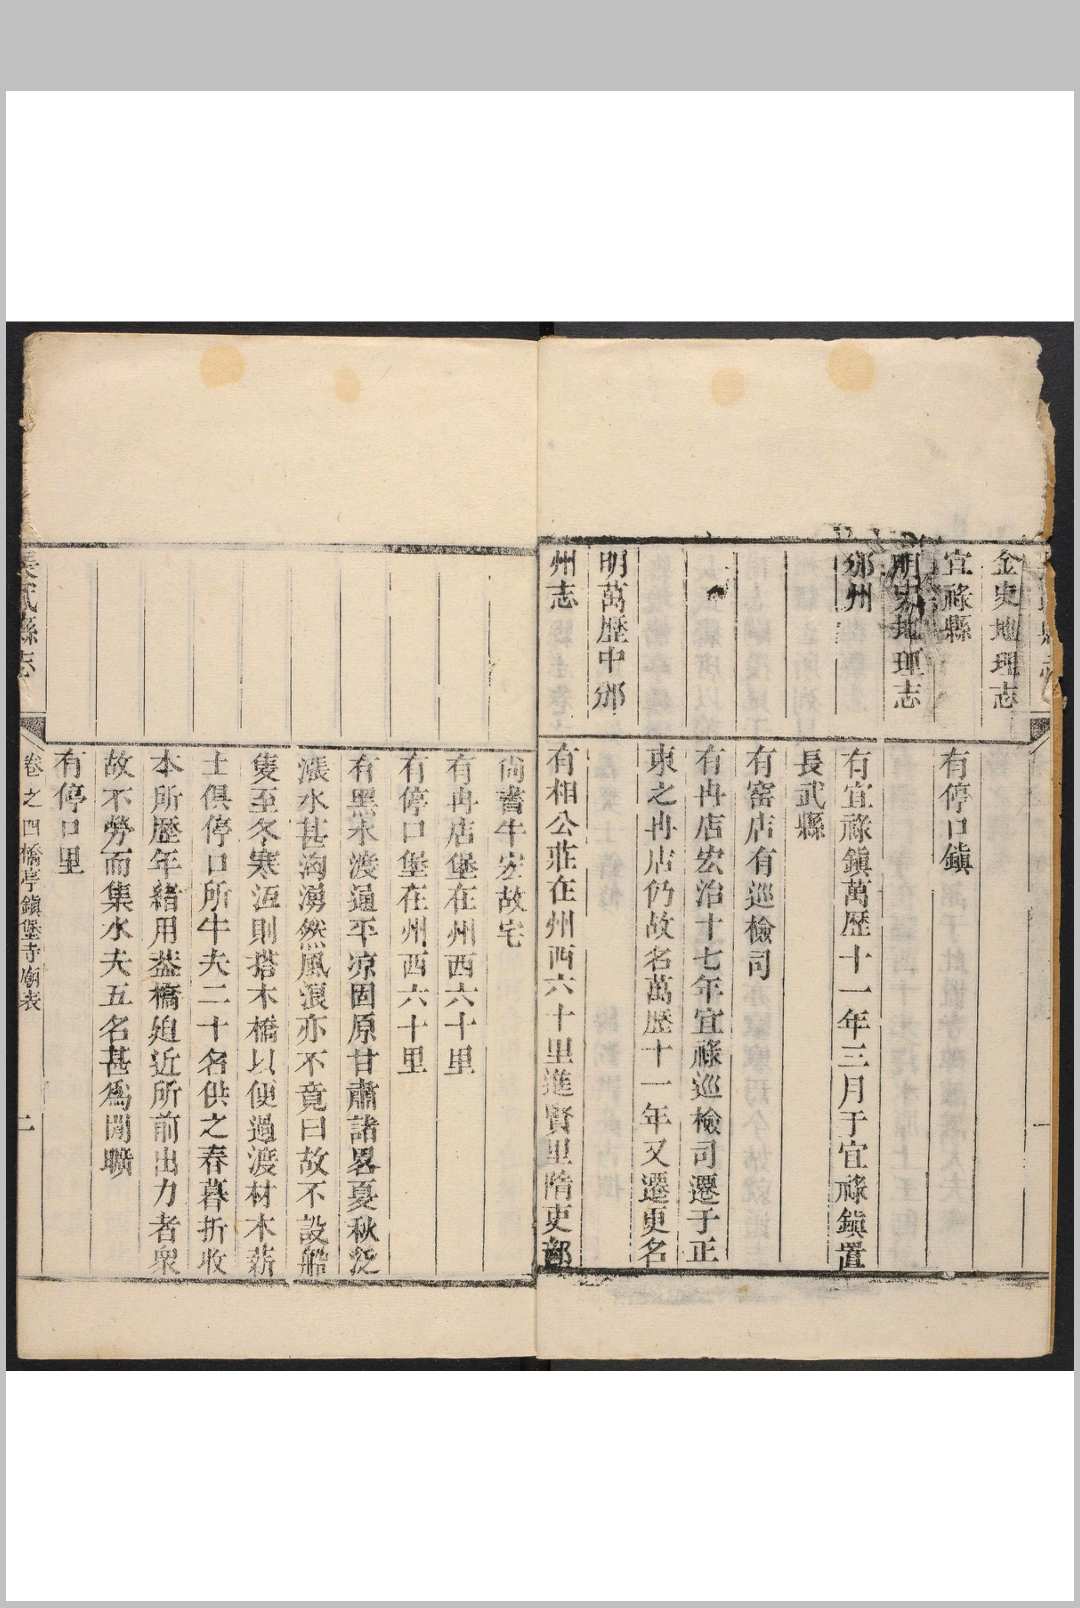 金史地理志
宜祿縣
有停口鎮
明史地理志
邠州
有宜祿鎮萬歷十一年三月于宜祿鎮置
長武縣
有窑店有巡檢司
有冉店宏治十七年宜祿巡檢司遷于正
東之冉店仍故名萬歷十一年又遷更名
明萬歷中邠
州志
有相公莊在州西六十里進賢里隋吏部
尚書牛宏故宅
有冉店堡在州西六十里
有停口堡在州西六十里
有黑水渡通平凉固原甘肅諸畧夏秋泛
漲水甚洶湧然風浪亦不竟日故不設船
隻至冬寒沍則搭木橋以便過渡材木薪
土俱停口所牛夫二十名供之春暮折收
本所歷年續用葢橋廹近所前出力者衆
故不勞而集水夫五名甚爲閒曠
有停口里
長武縣志
卷之四橋亭鎮堡寺廟表
二